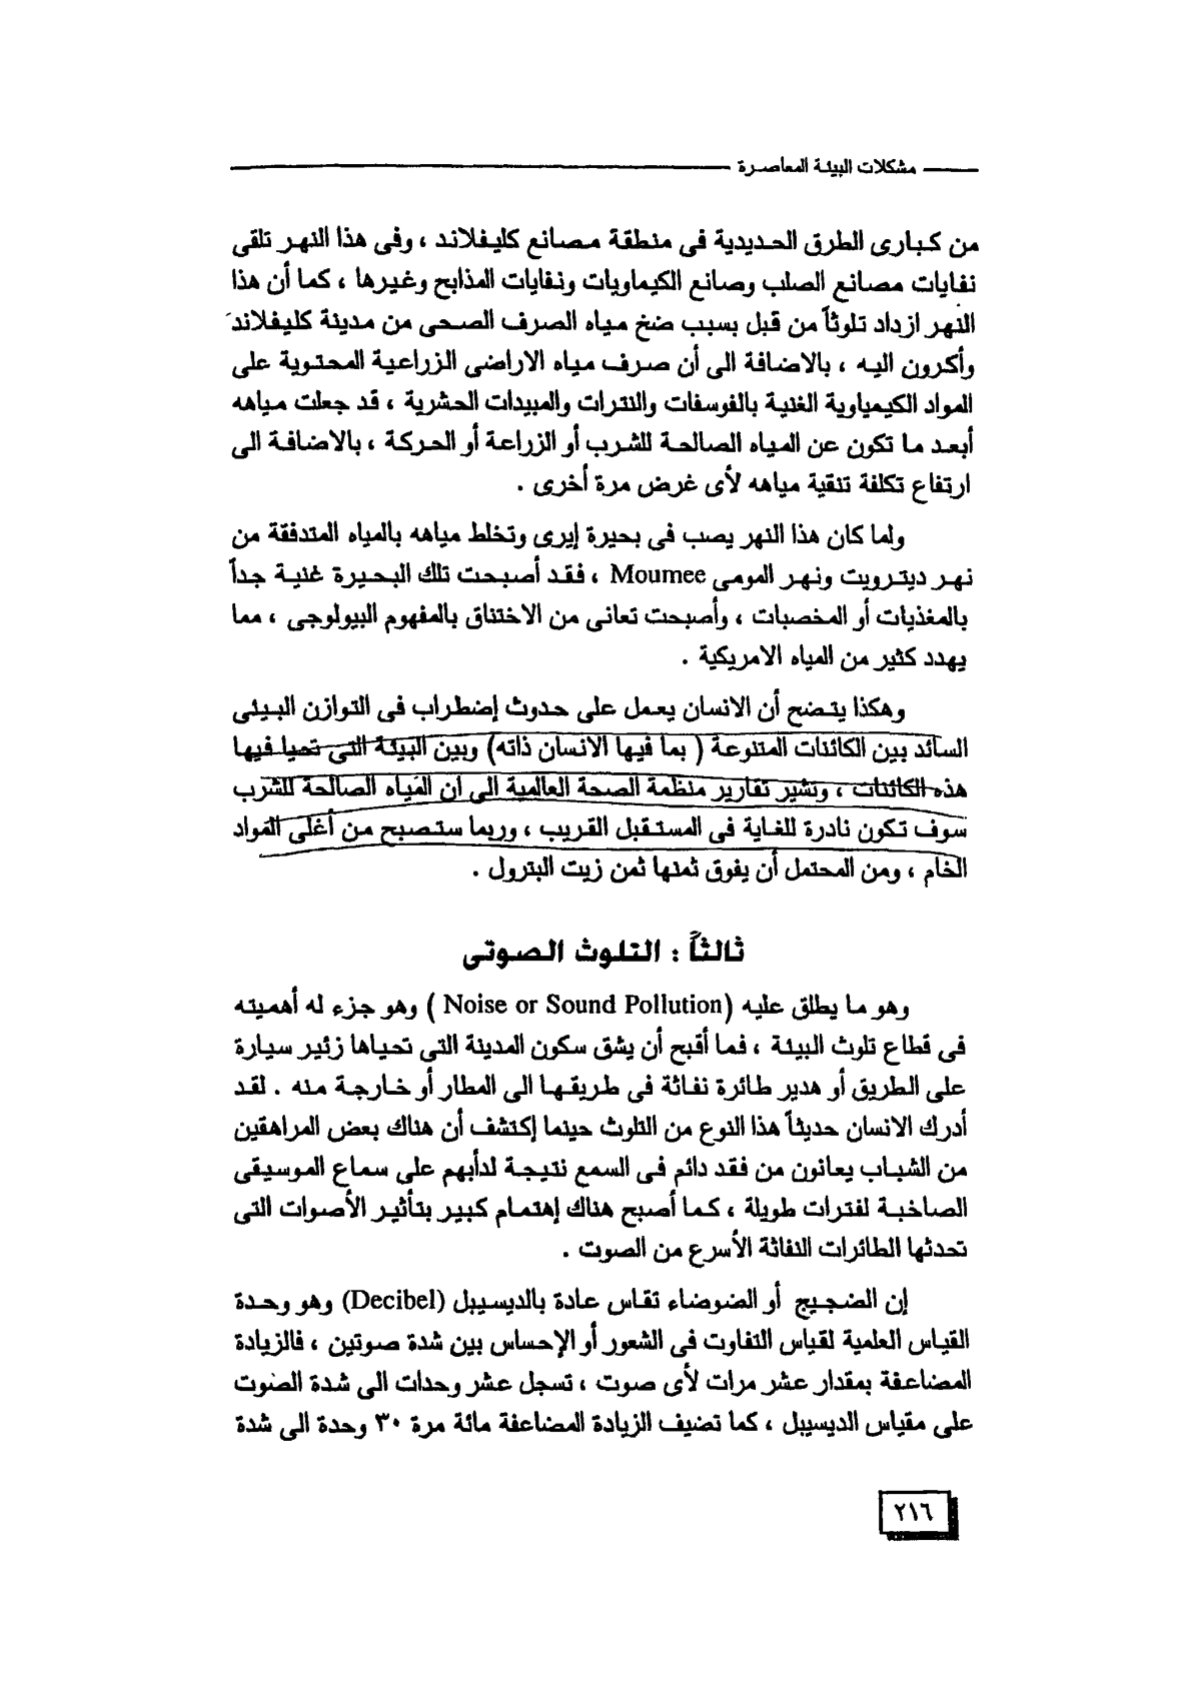 مشكلات البيئة المعاصرة
من كبارى الطرق الحديدية فى منطقة مصانع كليفلاند ، وفى هذا النهر تلقى
نفايات مصانع الصلب وصانع الكيماويات ونفايات المذابح وغيرها ، كما أن هذا
النهر ازداد تلوثاً من قبل بسبب ضخ مياه الصرف الصحى من مدينة كليفلاند
وأكرون اليه ، بالاضافة الى أن صرف مياه الاراضى الزراعية المحتوية على
المواد الكيمياوية الغنية بالفوسفات والنترات والمبيدات الحشرية ، قد جعلت مياهه
أبعد ما تكون عن المياه الصالحة للشرب أو الزراعة أو الحركة ، بالاضافة الى
ارتفاع تكلفة تنقية مياهه لأى غرض مرة أخرى .
ولما كان هذا النهر يصب فى بحيرة إيرى وتخلط مياهه بالمياه المتدفقة من
نهر ديترويت ونهر المومى Moumee ، فقد أصبحت تلك البحيرة غنية جداً
بالمغذيات أو المخصبات ، وأصبحت تعانى من الاختناق بالمفهوم البيولوجى ، مما
يهدد كثير من المياه الامريكية .
وهكذا يتضح أن الانسان يعمل على حدوث إضطراب فى التوازن البيئى
السائد بين الكائنات المتنوعة ( بما فيها الانسان ذاته) وبين البيئة التى تحيا فيها
هذه الكائنات ، وتشير تقارير منظمة الصحة العالمية الى ان المياه الصالحة للشرب
سوف تكون نادرة للغاية فى المستقبل القريب ، وربما ستصبح من أغلى المواد
الخام ، ومن المحتمل أن يفوق ثمنها ثمن زيت البترول .
ثالثاً : التلوث الصوتى
وهو ما يطلق عليه (Noise or Sound Pollution ) وهو جزء له أهميته
فى قطاع تلوث البيئة ، فما أقبح أن يشق سكون المدينة التى تحياها زئير سيارة
على الطريق أو هدير طائرة نفاثة فى طريقها الى المطار أو خارجة منه . لقد
أدرك الانسان حديثاً هذا النوع من التلوث حينما إكتشف أن هناك بعض المراهقين
من الشباب يعانون من فقد دائم فى السمع نتيجة لدأبهم على سماع الموسيقى
الصاخبة لفترات طويلة ، كما أصبح هناك إهتمام كبير بتأثير الأصوات التى
تحدثها الطائرات النفاثة الأسرع من الصوت .
إن الضجيج أو الضوضاء تقاس عادة بالديسيبل (Decibel) وهو وحدة
القياس العلمية لقياس التفاوت فى الشعور أو الإحساس بين شدة صوتين ، فالزيادة
المضاعفة بمقدار عشر مرات لأى صوت ، تسجل عشر وحدات الى شدة الصوت
على مقياس الديسيبل ، كما تضيف الزيادة المضاعفة مائة مرة ٣٠ وحدة الى شدة
٢١٦